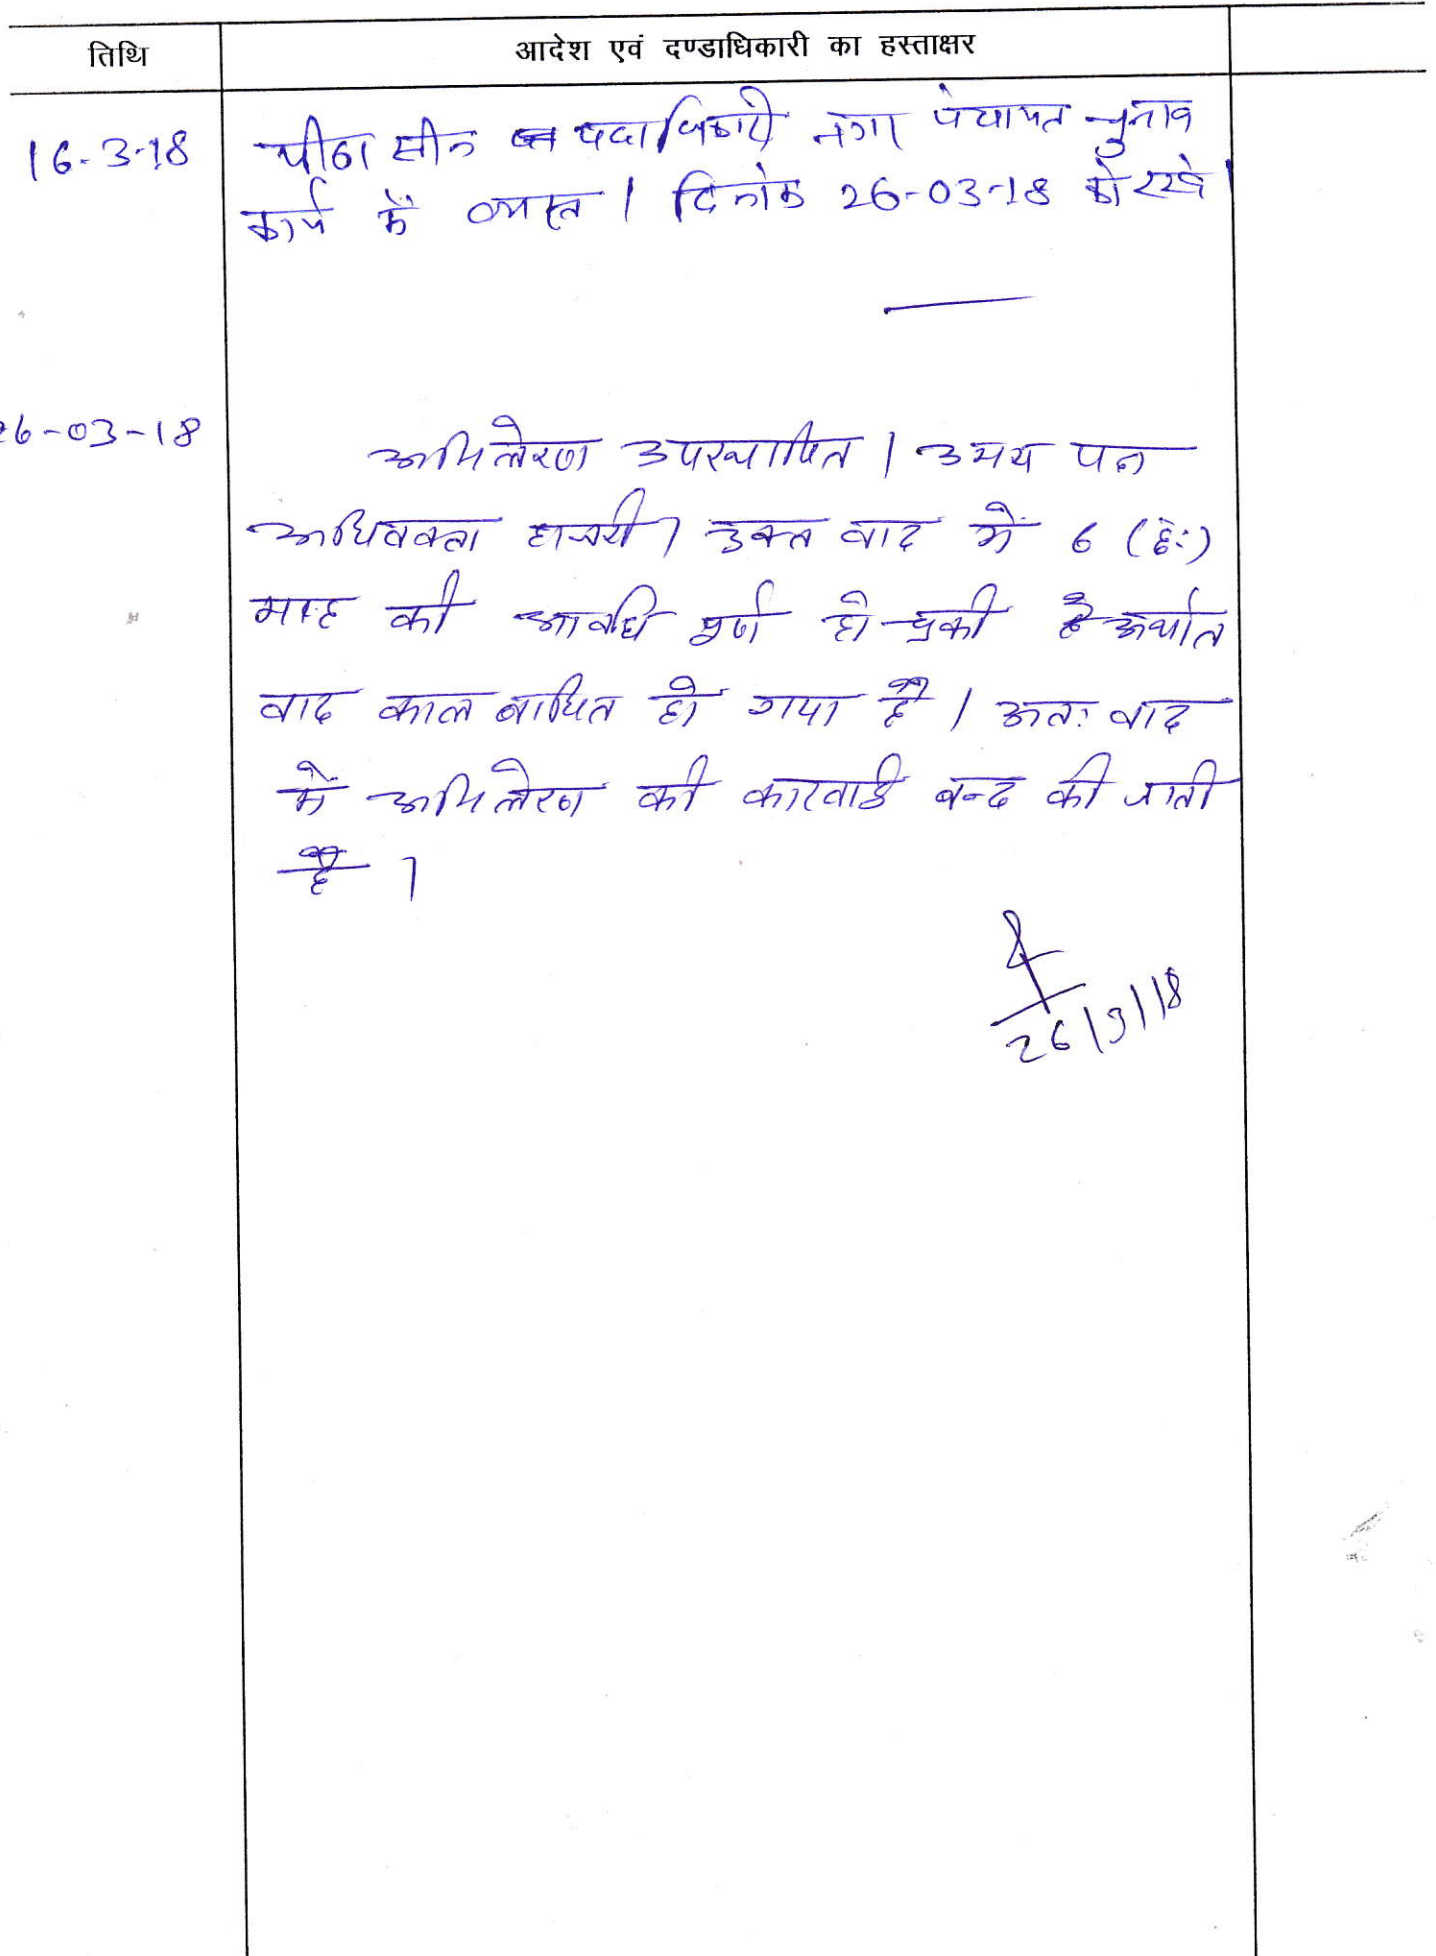 तिथि आदेश एवं दण्डाधिकारी का हस्ताक्षर
16-3-18 पीठासीन पदाधिकारी नगर पंचायत चुनाव
कार्य में व्यस्त । दिनांक 26-03-18 को रखे।
26-03-18 अभिलेख उपस्थापित । उभय पक्ष
अधिवक्ता हाजरी । उक्त वाद में 6 (छः)
माह की अवधि पूर्ण हो चुकी है अर्थात
वाद काल बाधित हो गया है । अतः वाद
में अभिलेख की कारवाई बन्द की जाती
है ।
26/3/18